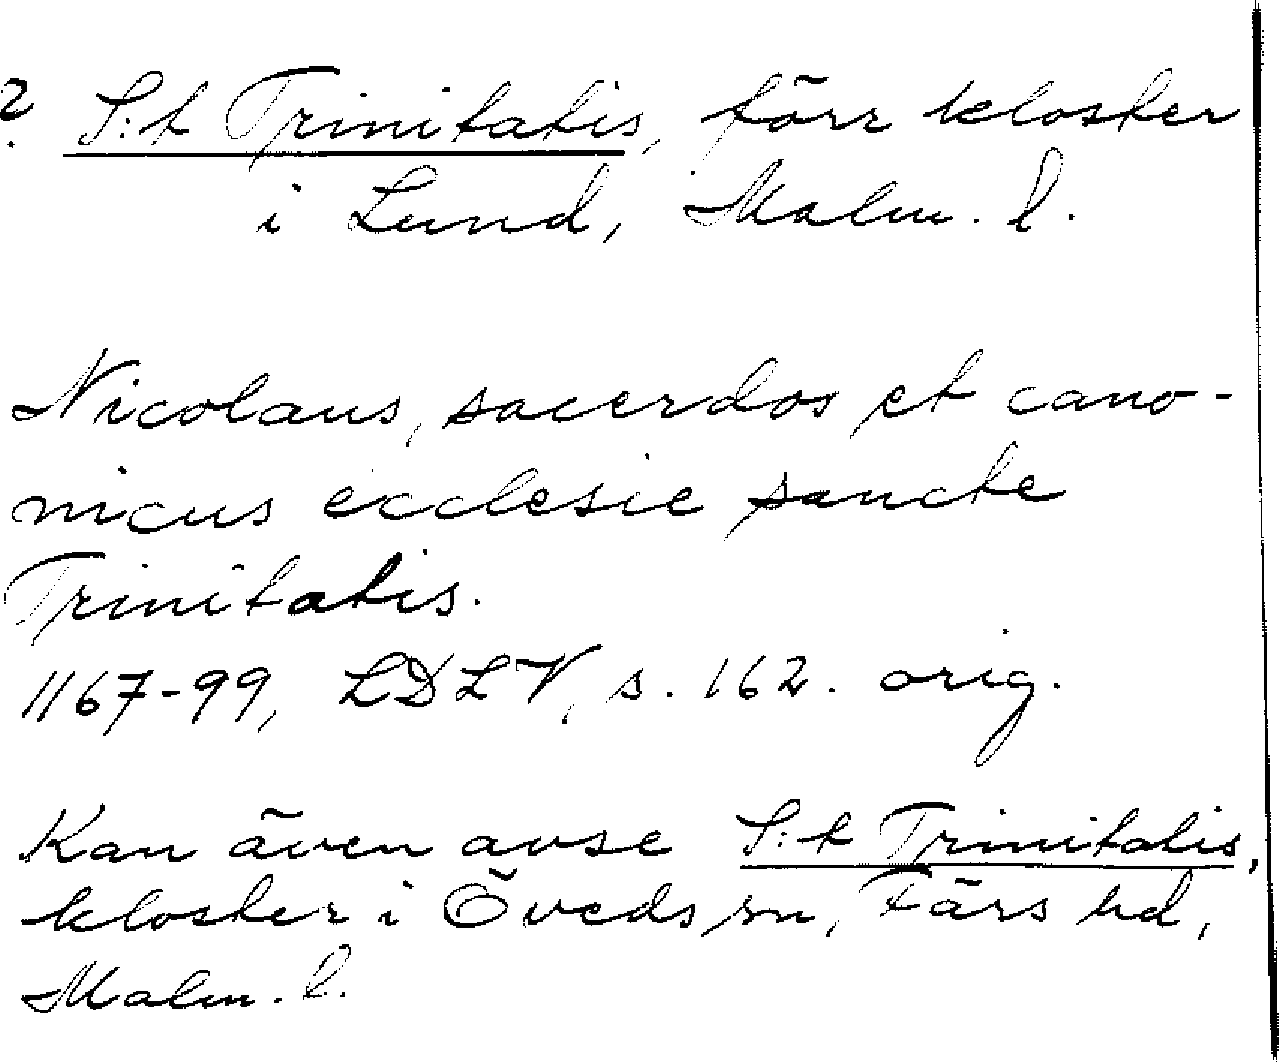 ? S:t Trinitatis, förr kloster
i Lund, Malm. l.
Nicolaus, sacerdos et cano-
nicus ecclesie sancte
Trinitatis.
1167-99, LDLV, s. 162. orig.
Kan även avse S:t Trinitatis,
kloster i Öveds sn, Färs hd,
Malm. l.